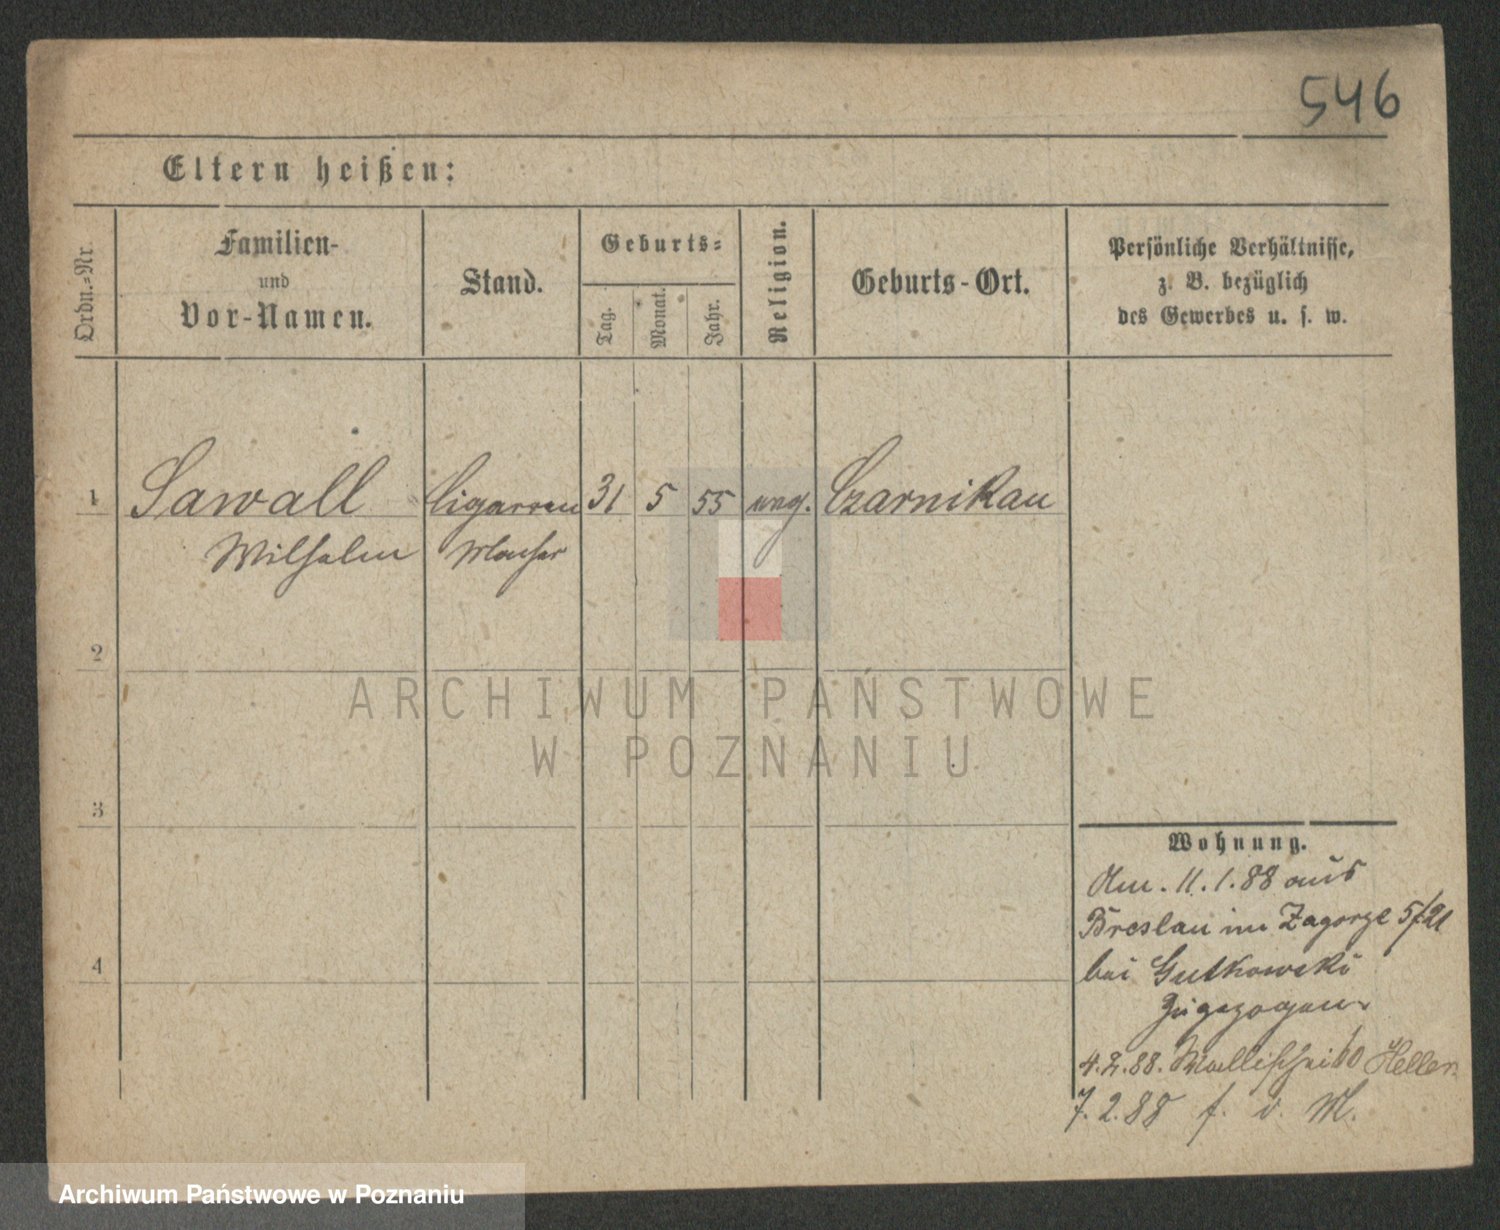 546
Eltern heißen:
Ordn.-Nr.
Familien-
und
Vor-Namen.
Stand.
Geburts-
Tag.
Monat.
Jahr.
Religion.
Geburts-Ort.
Persönliche Verhältnisse,
z. B. bezüglich
des Gewerbes u. s. w.
1 Sawall Cigarren 31 5 55 evag. Czarnikau
Wilhelm Macher
2
ARCHIWUM PAŃSTWOWE
W POZNANIU
3
Wohnung.
Am. 11.1.88 aus
Breslau im Zagorze 5/21
bei Gutkowski
Zugezogen
4
4.2.88. Wallischei Heller
7.2.88 f. v. M.
Archiwum Państwowe w Poznaniu